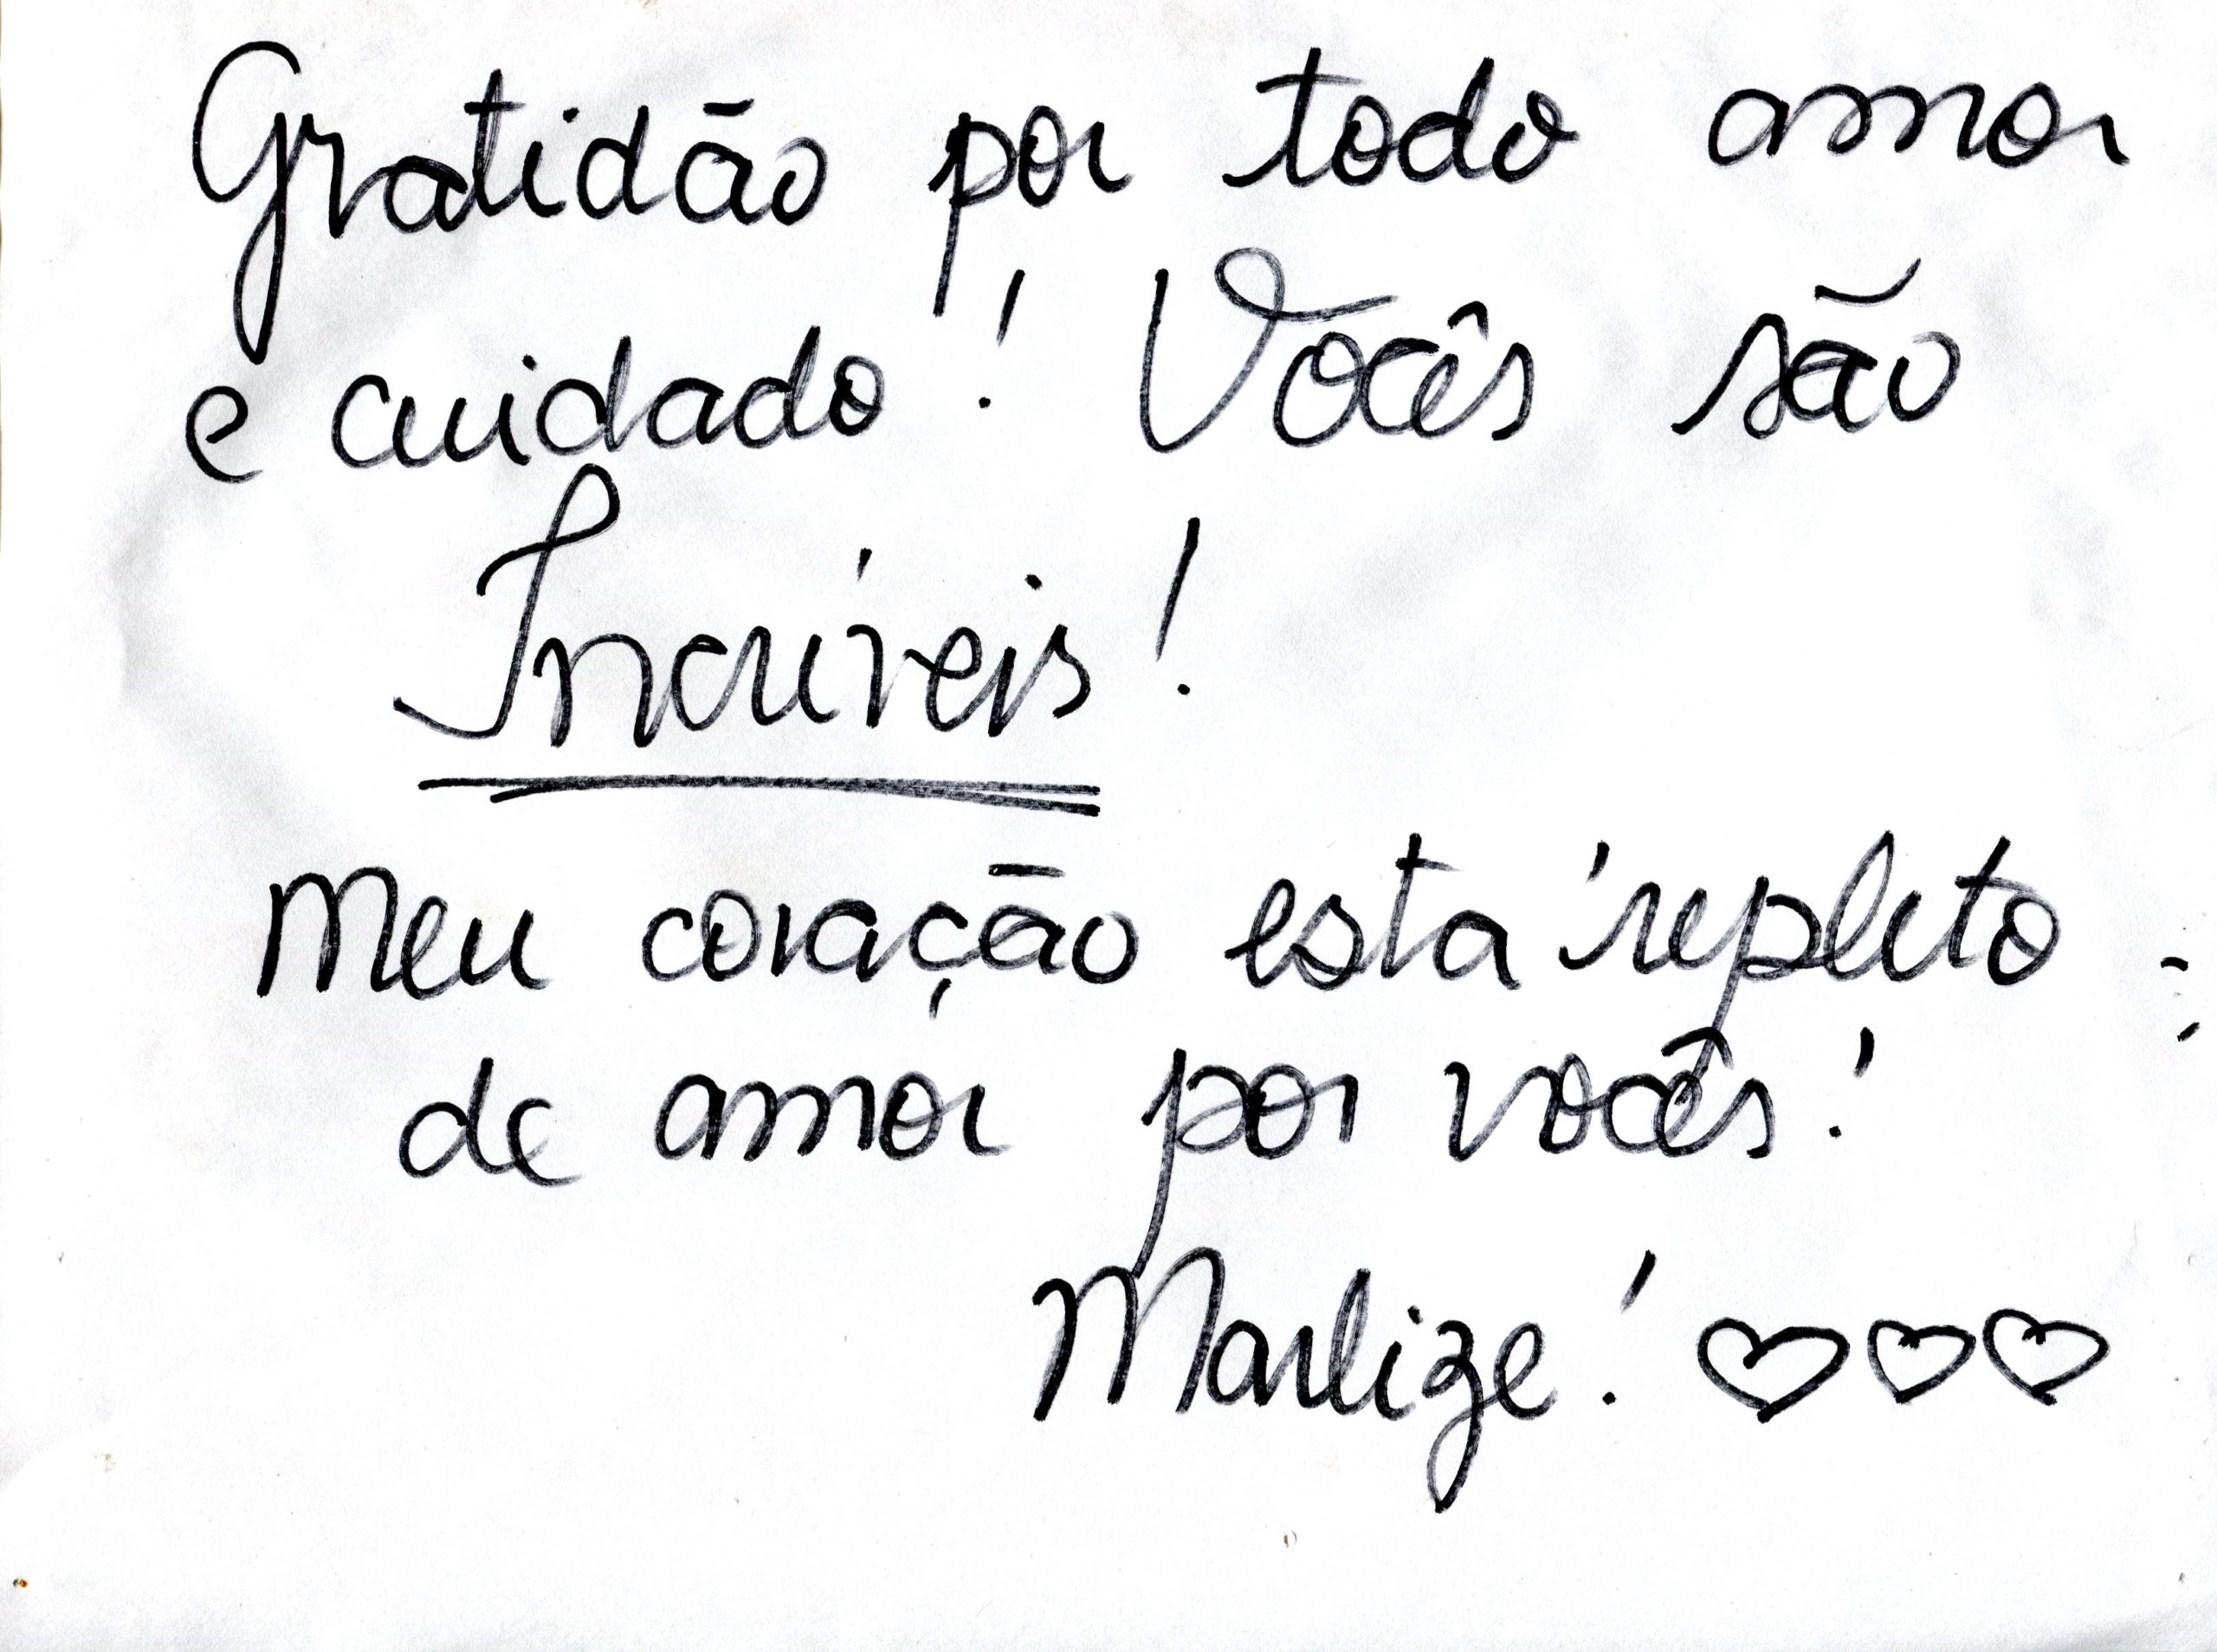 Gratidão por todo amor
e cuidado! Vocês são
Incríveis!
Meu coração está repleto
de amor por vocês!
Marlize! ♡♡♡